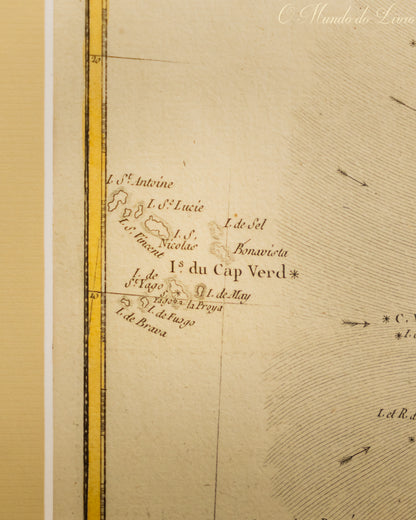 O Mundo do Livro
I. St. Antoine
I. Ste. Lucie
I. S. Vincent
I. S.
Nicolas
I. de Sel
Bonavista
Is. du Cap Verd
I. de
St. Yago
I. de May
la Praya
I. de Fuego
I. de Brava
C. V
I. et R. d